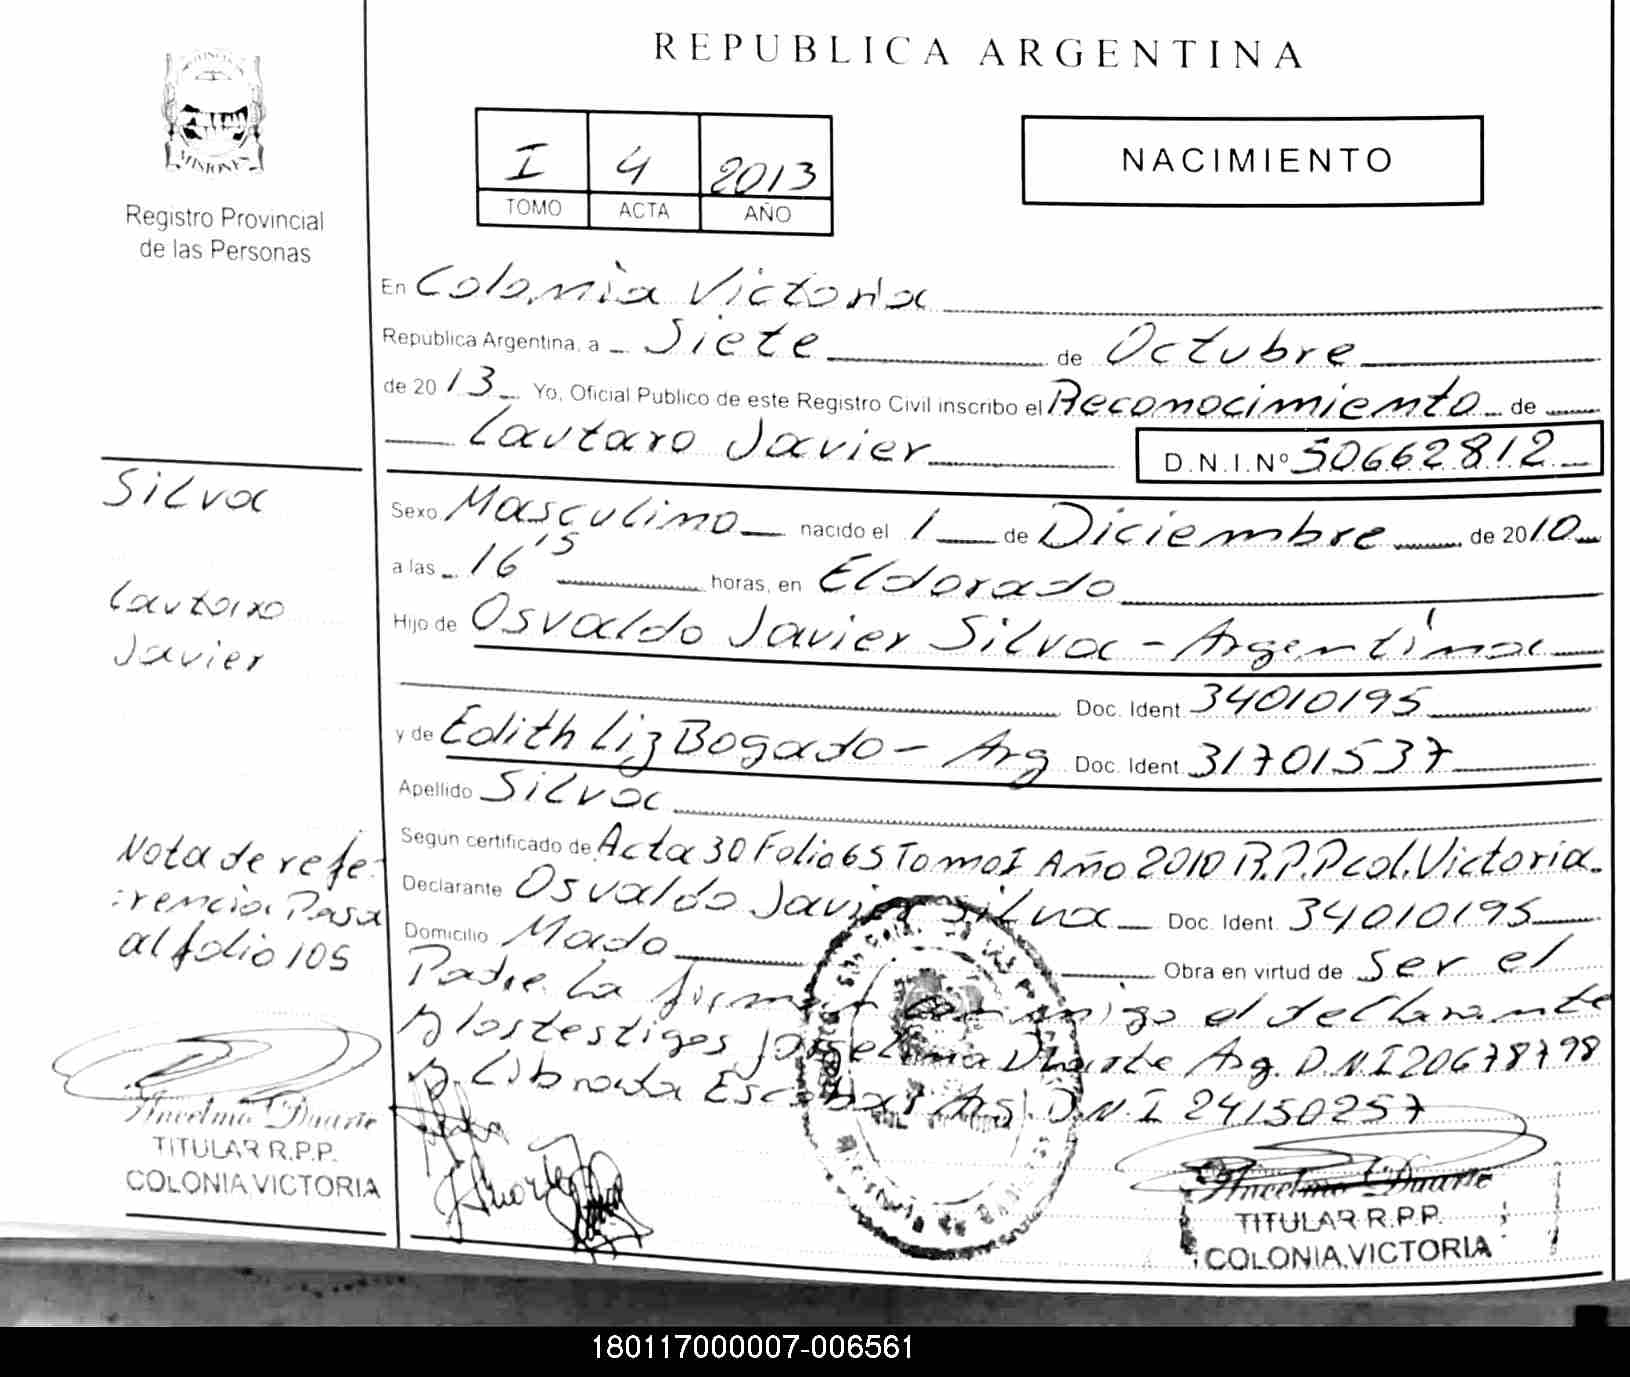 REPUBLICA ARGENTINA
MISIONES
Registro Provincial
de las Personas
I 4 2013
TOMO ACTA AÑO
NACIMIENTO
En Colonia Victoria
Republica Argentina, a Siete de Octubre
de 2013 Yo, Oficial Publico de este Registro Civil inscribo el Reconocimiento de
Lautaro Javier D.N.I.Nº 50662812
Silva
Lautaro
Javier
Sexo Masculino nacido el 1 de Diciembre de 2010
a las 16'15 horas, en Eldorado
Hijo de Osvaldo Javier Silva - Argentina
Doc. Ident. 34010195
y de Edith Liz Bogado - Arg Doc. Ident. 31701537
Apellido Silva
Según certificado de Acta 30 Folio 65 Tomo I Año 2010 R.P.P col. Victoria.
Declarante Osvaldo Javier Silva Doc. Ident. 34010195
Domicilio Mado Obra en virtud de Ser el
Padre. La firman conmigo el declarante
y los testigos Duarte Arg. D.N.I 20678798
y Librada Escobar Arg. D.N.I 24150257
Nota de refe-
rencia Pasa
al folio 105
Ancelmo Duarte
TITULAR R.P.P.
COLONIA VICTORIA
Ancelmo Duarte
TITULAR R.P.P.
COLONIA VICTORIA
180117000007-006561